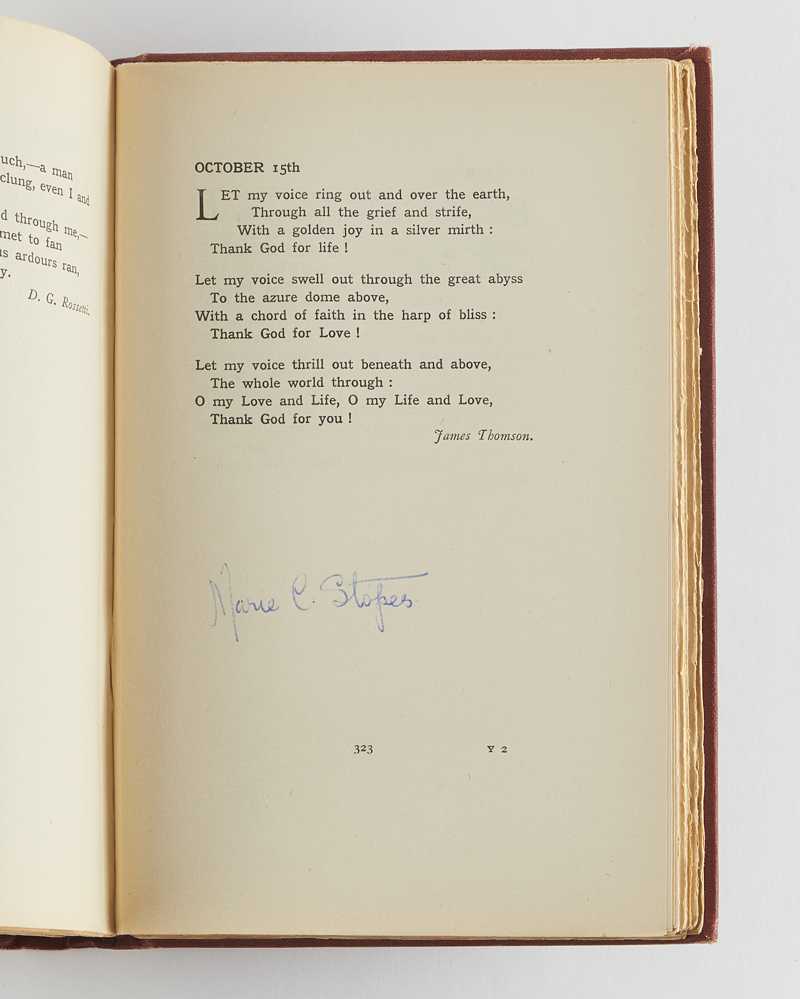 uch,—a man
clung, even I and
d through me,—
met to fan
s ardours ran,
y.
D. G. Rossetti.
OCTOBER 15th
LET my voice ring out and over the earth,
Through all the grief and strife,
With a golden joy in a silver mirth :
Thank God for life !
Let my voice swell out through the great abyss
To the azure dome above,
With a chord of faith in the harp of bliss :
Thank God for Love !
Let my voice thrill out beneath and above,
The whole world through :
O my Love and Life, O my Life and Love,
Thank God for you !
James Thomson.
Marie C. Stopes
323 Y 2